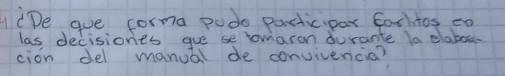 ¿De que forma pudo participar Carlitos en
las decisiones que se tomaron durante la elabora-
ción del manual de convivencia?